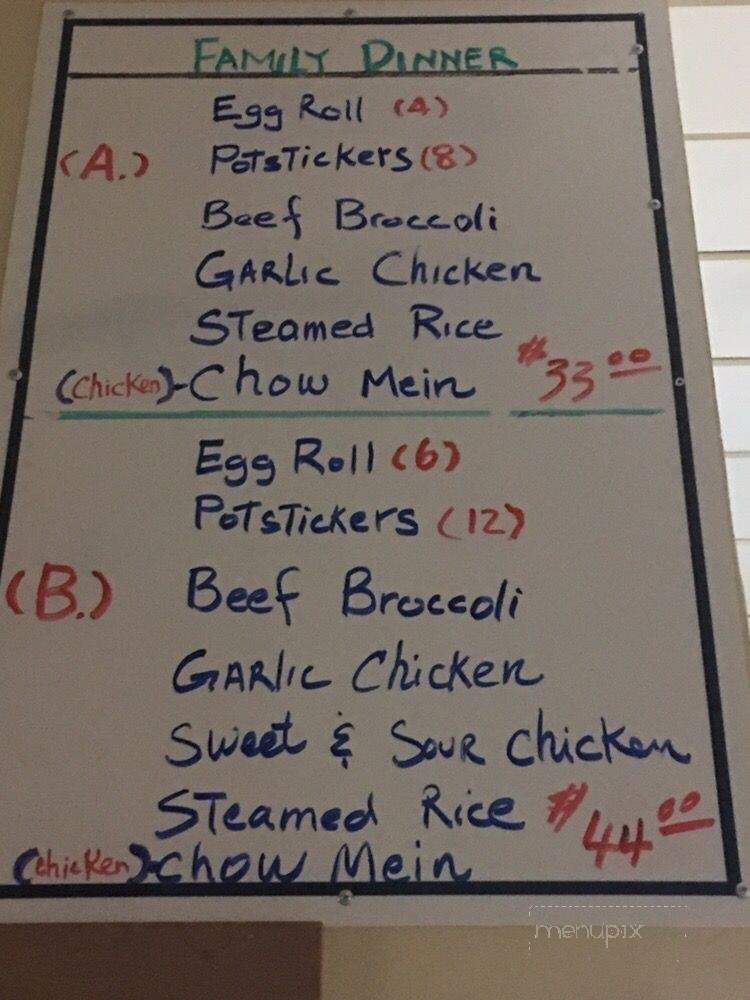 FAMILY DINNER
Egg Roll (4)
(A.) PotStickers (8)
Beef Broccoli
GARLIC Chicken
STeamed Rice
(Chicken)-Chow Mein $33.00
Egg Roll (6)
PotSTickers (12)
(B.) Beef Broccoli
GARlic Chicken
Sweet & Sour chicken
STeamed Rice $44.00
(chicken)-chow Mein
menupix